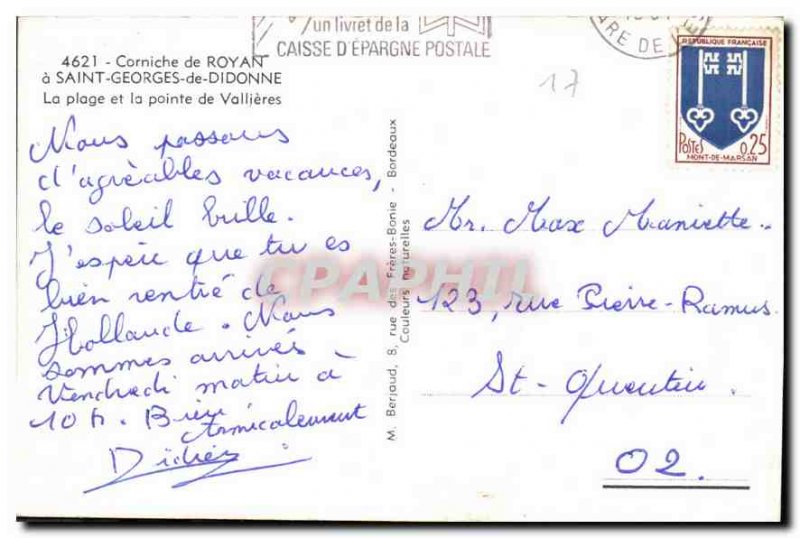 un livret de la
CAISSE D'ÉPARGNE POSTALE
4621 - Corniche de ROYAN
à SAINT-GEORGES-de-DIDONNE
La plage et la pointe de Vallières
17
RÉPUBLIQUE FRANÇAISE
POSTES 0,25
MONT-DE-MARSAN
Nous passons
d'agréables vacances,
le soleil brille.
J'espère que tu es
bien rentré de
Hollande. Nous
sommes arrivés
Vendredi matin à
10 h. Bien
Amicalement
Didier
M. Berjaud, 8, rue des Frères-Bonie - Bordeaux
Couleurs naturelles
Mr. Max Maniette.
123, rue Pierre-Ramus
St-Quentin.
02.
CPAPHIL